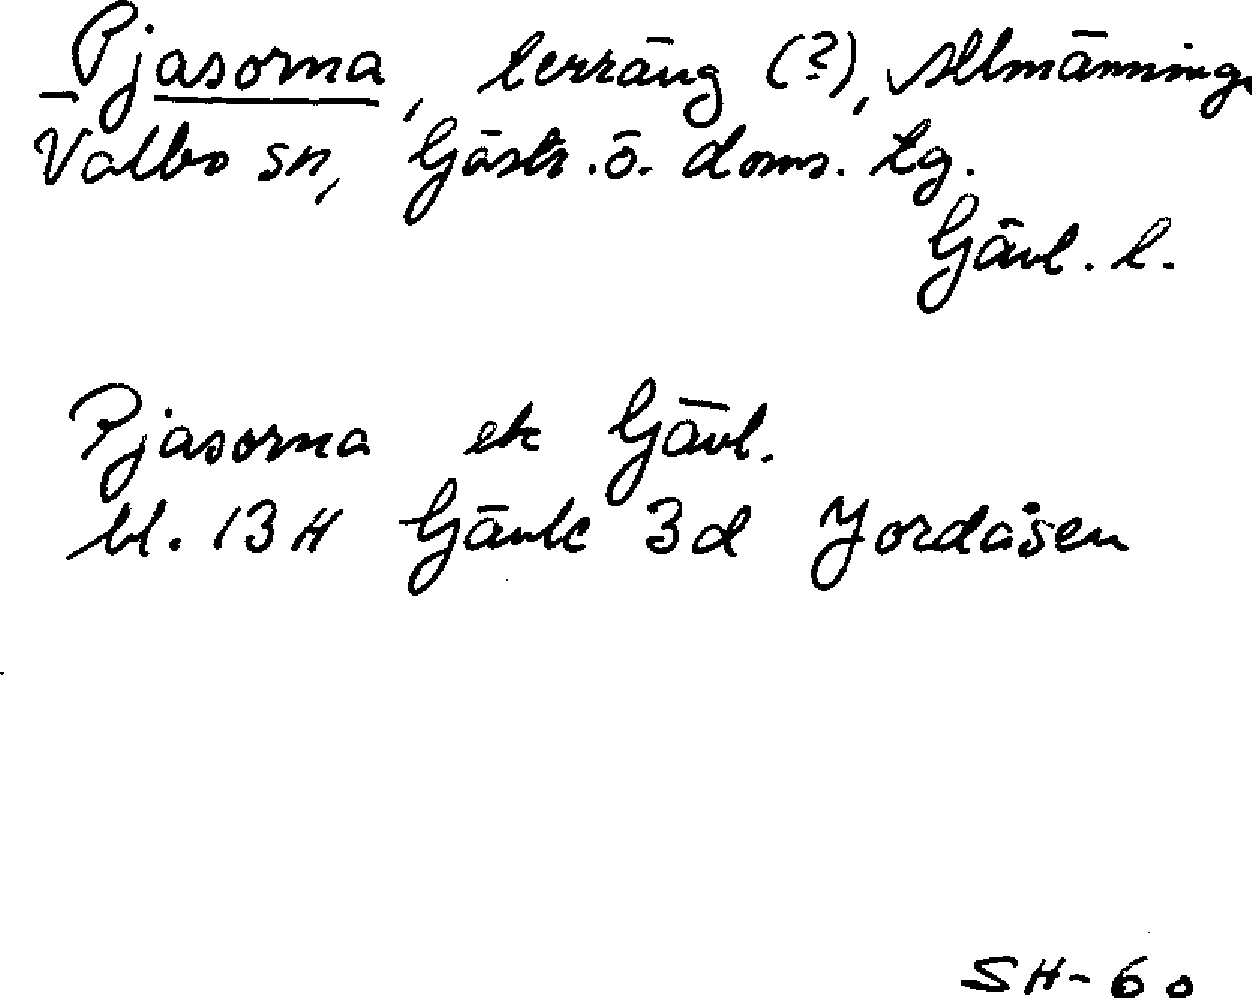 Pjasorna, terräng (?), Allmänning
Valbo sn, Gästr. ö. doms. tg.
Gävl. l.
Pjasorna ek Gävl.
bl. 13 H Gävle 3d Jordåsen
SH-60